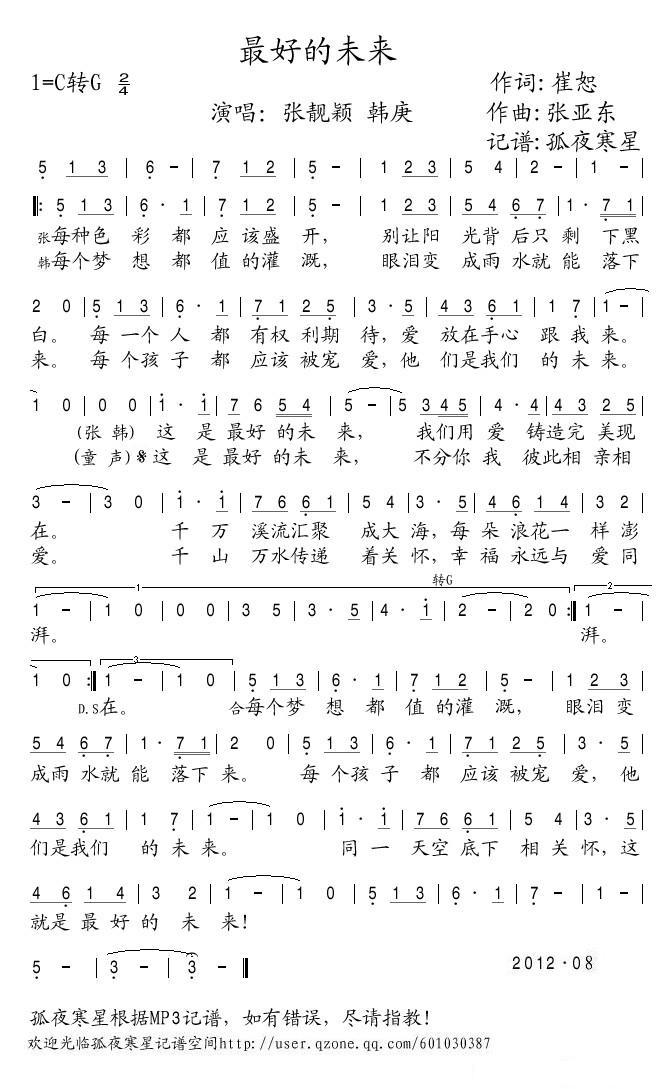 最好的未来
1=C转G 2/4
作词:崔恕
演唱: 张靓颖 韩庚
作曲:张亚东
记谱:孤夜寒星
5 1 3 | 6 - | 7 1 2 | 5 - | 1 2 3 | 5 4 | 2 - | 1 - |
‖: 5 1 3 | 6 · 1 | 7 1 2 | 5 - | 1 2 3 | 5 4 6 7 | 1 · 7 1 |
张每种色 彩 都 应 该盛 开, 别让阳 光背 后只 剩 下黑
韩每个梦 想 都 值 的灌 溉, 眼泪变 成雨 水就 能 落下
2 0 | 5 1 3 | 6 · 1 | 7 1 2 5 | 3 · 5 | 4 3 6 1 | 1 7 | 1 - |
白。 每 一个 人 都 有权 利期 待,爱 放在手心 跟 我 来。
来。 每 个孩 子 都 应该 被宠 爱,他 们是我们 的 未 来。
1 0 | 0 0 | 1 · 1 | 7 6 5 4 | 5 - | 5 3 4 5 | 4 · 4 | 4 3 2 5 |
(张 韩) 这 是 最好 的未 来, 我们用 爱 铸造完 美现
(童 声)𝄋这 是 最好 的未 来, 不分你 我 彼此相 亲相
3 - | 3 0 | 1 · 1 | 7 6 6 1 | 5 4 | 3 · 5 | 4 6 1 4 | 3 2 |
在。 千 万 溪流汇聚 成大 海,每 朵 浪花一 样 澎
爱。 千 山 万水传递 着关 怀,幸 福 永远与 爱 同
1
转G
2
1 - | 1 0 | 0 0 | 3 5 | 3 · 5 | 4 · 1 | 2 - | 2 0 :‖ 1 - |
湃。 湃。
3
1 0 :‖ 1 - | 1 0 | 5 1 3 | 6 · 1 | 7 1 2 | 5 - | 1 2 3 |
D.S在。 合每个梦 想 都 值 的灌 溉, 眼泪 变
5 4 6 7 | 1 · 7 1 | 2 0 | 5 1 3 | 6 · 1 | 7 1 2 5 | 3 · 5 |
成雨 水就 能 落下 来。 每 个孩 子 都 应该 被宠 爱,他
4 3 6 1 | 1 7 | 1 - | 1 0 | 1 · 1 | 7 6 6 1 | 5 4 | 3 · 5 |
们是我们 的 未 来。 同 一 天空 底下 相 关 怀,这
4 6 1 4 | 3 2 | 1 - | 1 0 | 5 1 3 | 6 · 1 | 7 - | 1 - |
就是 最 好 的 未 来!
5 - | 3 - | 3 - ‖
2012·08
孤夜寒星根据MP3记谱, 如有错误, 尽请指教!
欢迎光临孤夜寒星记谱空间http://user.qzone.qq.com/601030387